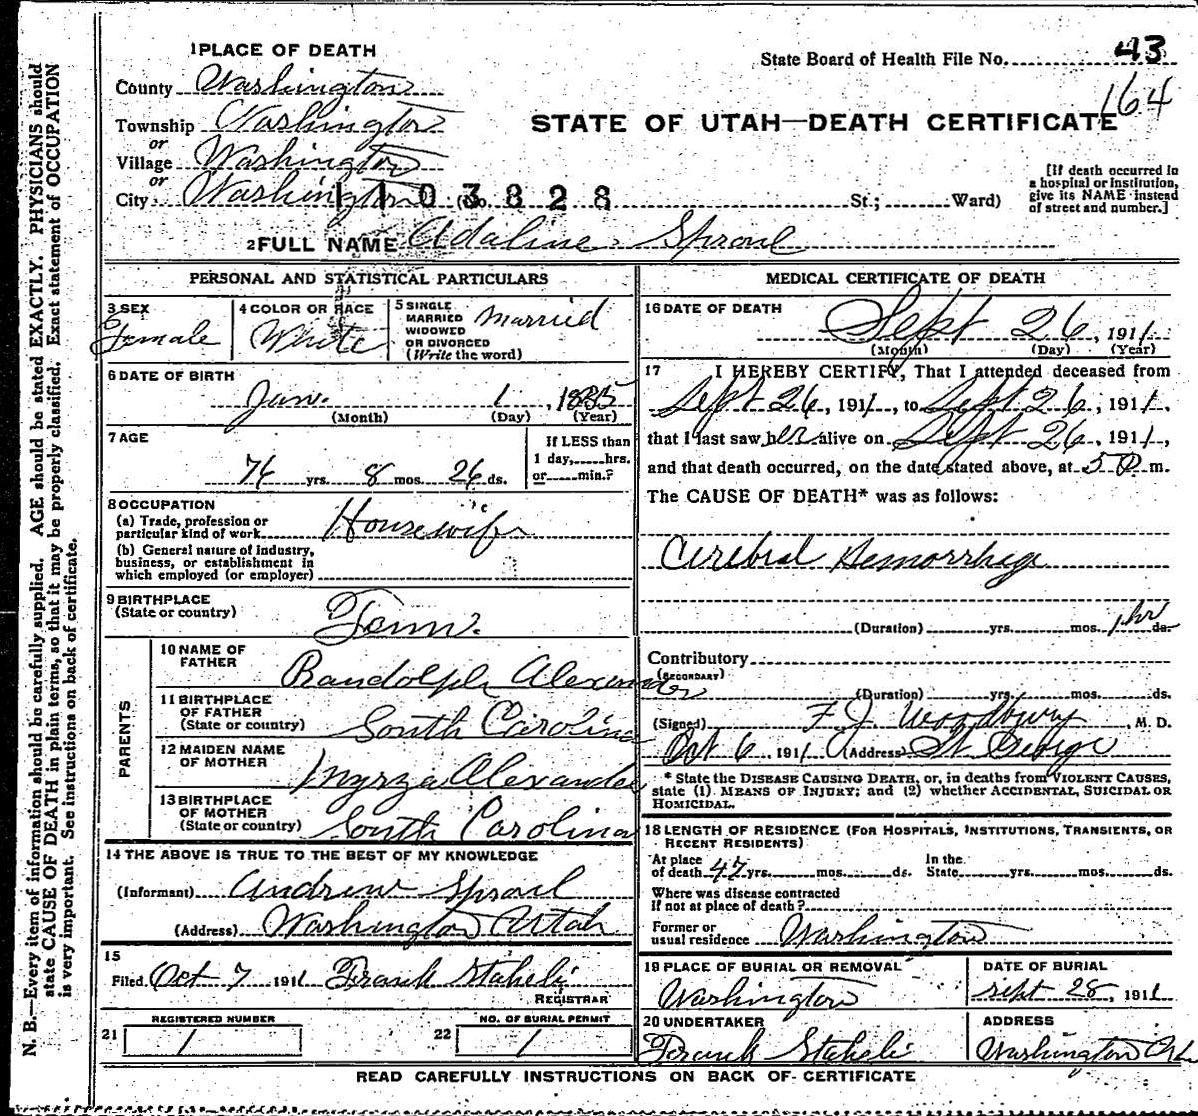 N. B.—Every item of information should be carefully supplied. AGE should be stated EXACTLY. PHYSICIANS should
state CAUSE OF DEATH in plain terms, so that it may be properly classified. Exact statement of OCCUPATION
is very important. See instructions on back of certificate.
1 PLACE OF DEATH
State Board of Health File No. 43
164
County Washington
Township Washington
or
Village Washington
or
City Washington (No. St.; Ward)
1103828
STATE OF UTAH—DEATH CERTIFICATE
[If death occurred in
a hospital or institution,
give its NAME instead
of street and number.]
2 FULL NAME Adaline Sproul
PERSONAL AND STATISTICAL PARTICULARS
3 SEX
Female
4 COLOR OR RACE
White
5 SINGLE
MARRIED
WIDOWED
OR DIVORCED
(Write the word)
Married
6 DATE OF BIRTH
Jan. 1, 1835
(Month) (Day) (Year)
7 AGE
76 yrs. 8 mos. 26 ds.
If LESS than
1 day, hrs.
or min.?
8 OCCUPATION
(a) Trade, profession or
particular kind of work Housewife
(b) General nature of industry,
business, or establishment in
which employed (or employer)
9 BIRTHPLACE
(State or country)
Tenn.
PARENTS
10 NAME OF
FATHER
Randolph Alexander
11 BIRTHPLACE
OF FATHER
(State or country)
South Carolina
12 MAIDEN NAME
OF MOTHER
Myrza Alexander
13 BIRTHPLACE
OF MOTHER
(State or country)
South Carolina
14 THE ABOVE IS TRUE TO THE BEST OF MY KNOWLEDGE
(Informant) Andrew Sproul
(Address) Washington Utah
15
Filed Oct 7 1911 Frank Staheli
REGISTRAR
21 REGISTERED NUMBER
1
22 NO. OF BURIAL PERMIT
1
MEDICAL CERTIFICATE OF DEATH
16 DATE OF DEATH
Sept 26, 1911
(Month) (Day) (Year)
17 I HEREBY CERTIFY, That I attended deceased from
Sept 26, 1911, to Sept 26, 1911,
that I last saw her alive on Sept 26, 1911,
and that death occurred, on the date stated above, at 5 m.
The CAUSE OF DEATH* was as follows:
Cerebral Hemorrhage
(Duration) yrs. mos. 1 hr ds.
Contributory
(SECONDARY)
(Duration) yrs. mos. ds.
(Signed) F J Woodbury, M. D.
Oct 6 1911 (Address) St George
* State the DISEASE CAUSING DEATH, or, in deaths from VIOLENT CAUSES,
state (1) MEANS OF INJURY; and (2) whether ACCIDENTAL, SUICIDAL OR
HOMICIDAL.
18 LENGTH OF RESIDENCE (FOR HOSPITALS, INSTITUTIONS, TRANSIENTS, OR
RECENT RESIDENTS)
At place
of death 47 yrs. mos. ds.
In the
State yrs. mos. ds.
Where was disease contracted
If not at place of death?
Former or
usual residence Washington
19 PLACE OF BURIAL OR REMOVAL
Washington
DATE OF BURIAL
Sept 28, 1911
20 UNDERTAKER
Frank Staheli
ADDRESS
Washington
READ CAREFULLY INSTRUCTIONS ON BACK OF CERTIFICATE